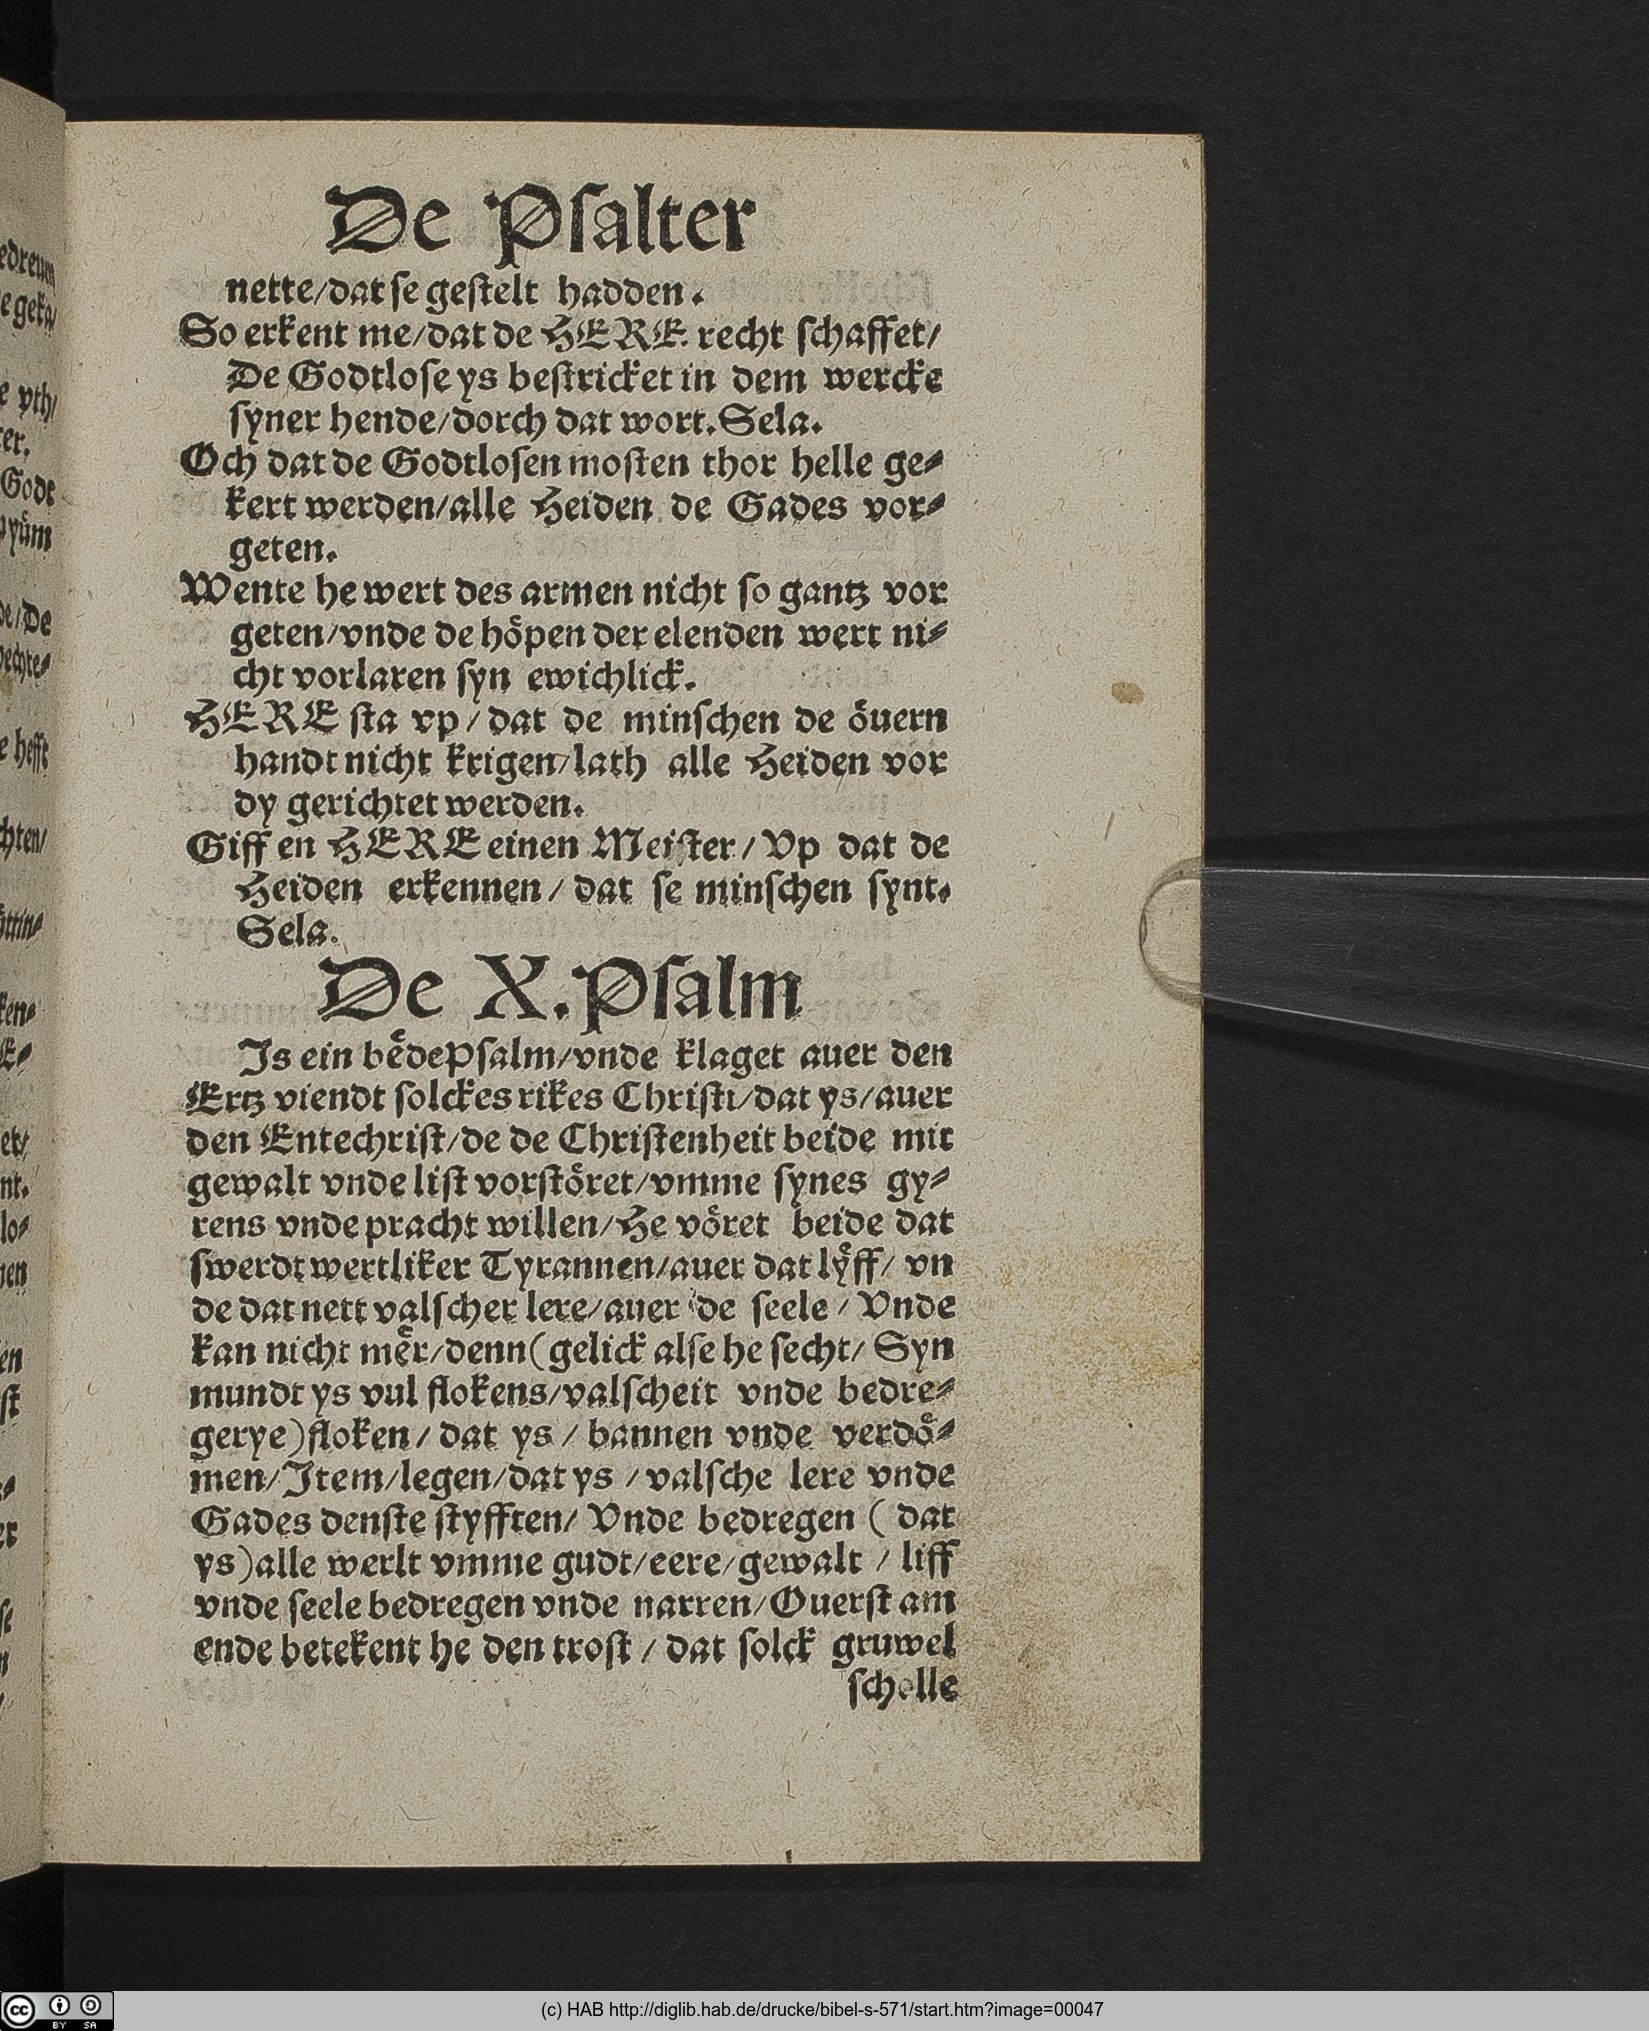 De Psalter
nette/dat se gestelt hadden.
So erkent me/dat de HERE recht schaffet/
De Godtlose ys bestricket in dem wercke
syner hende/dorch dat wort. Sela.
Och dat de Godtlosen mosten thor helle ge-
kert werden/alle Heiden de Gades vor-
geten.
Wente he wert des armen nicht so gantz vor
geten/vnde de hoͤpen der elenden wert ni-
cht vorlaren syn ewichlick.
HERE sta vp/dat de minschen de oͤuern
handt nicht krigen/lath alle Heiden vor
dy gerichtet werden.
Giff en HERE einen Meister/Vp dat de
Heiden erkennen/dat se minschen synt.
Sela.
De X. Psalm
Is ein beͤdePsalm/vnde klaget auer den
Ertz viendt solckes rikes Christi/dat ys/auer
den Entechrist/de de Christenheit beide mit
gewalt vnde list vorstoͤret/vmme synes gy-
rens vnde pracht willen/He voͤret beide dat
swerdt wertliker Tyrannen/auer dat lyͤff/vn
de dat nett valscher lere/auer de seele/Vnde
kan nicht meͤr/denn (gelick alse he secht/Syn
mundt ys vul flokens/valscheit vnde bedre-
gerye) floken/dat ys/bannen vnde verdoͤ-
men/Item/legen/dat ys/valsche lere vnde
Gades denste styfften/Vnde bedregen (dat
ys) alle werlt vmme gudt/eere/gewalt/liff
vnde seele bedregen vnde narren/Ouerst am
ende betekent he den trost/dat solck gruwel
scholle
(c) HAB http://diglib.hab.de/drucke/bibel-s-571/start.htm?image=00047